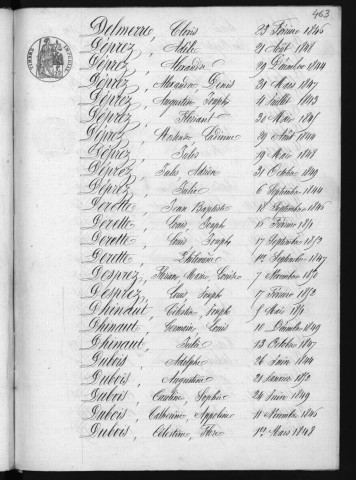 463
Delmerre, Clovis 23 Février 1846
Déprez, Adèle 21 Août 1848
Déprez, Alexandre 29 Décembre 1844
Déprez, Alexandre Denis 21 Mars 1847
Déprez, Augustin Joseph 4 Juillet 1843
Déprez, Florent 21 Mai
Déprez, 29 Août 1844
Déprez, Jules 19 Mai 1848
Déprez, Jules Adrien 31 Octobre 1849
Déprez, Julie 6 Septembre 1844
Derette, Jean Baptiste 18 Septembre 1846
Derette, Louis Joseph 15 Février
Derette, Louis Joseph 17 Septembre 1852
Derette, Philomène Septembre 1847
Desprez, Marie Louise 7 Novembre
Desprez, Louis Joseph 17 Février 1852
Dhinaut, Célestin Joseph 9 Mai
Dhinaut, Germain Louis 10 Décembre 1849
Dhinaut, 13 Octobre 1847
Dubois, Adolphe 26 Juin 1844
Dubois, Augustine 21 Janvier 1852
Dubois, Caroline Sophie 24 Juin 1849
Dubois, Catherine Appoline 11 Novembre 1846
Dubois, Célestine Flore 1er Mars 1848